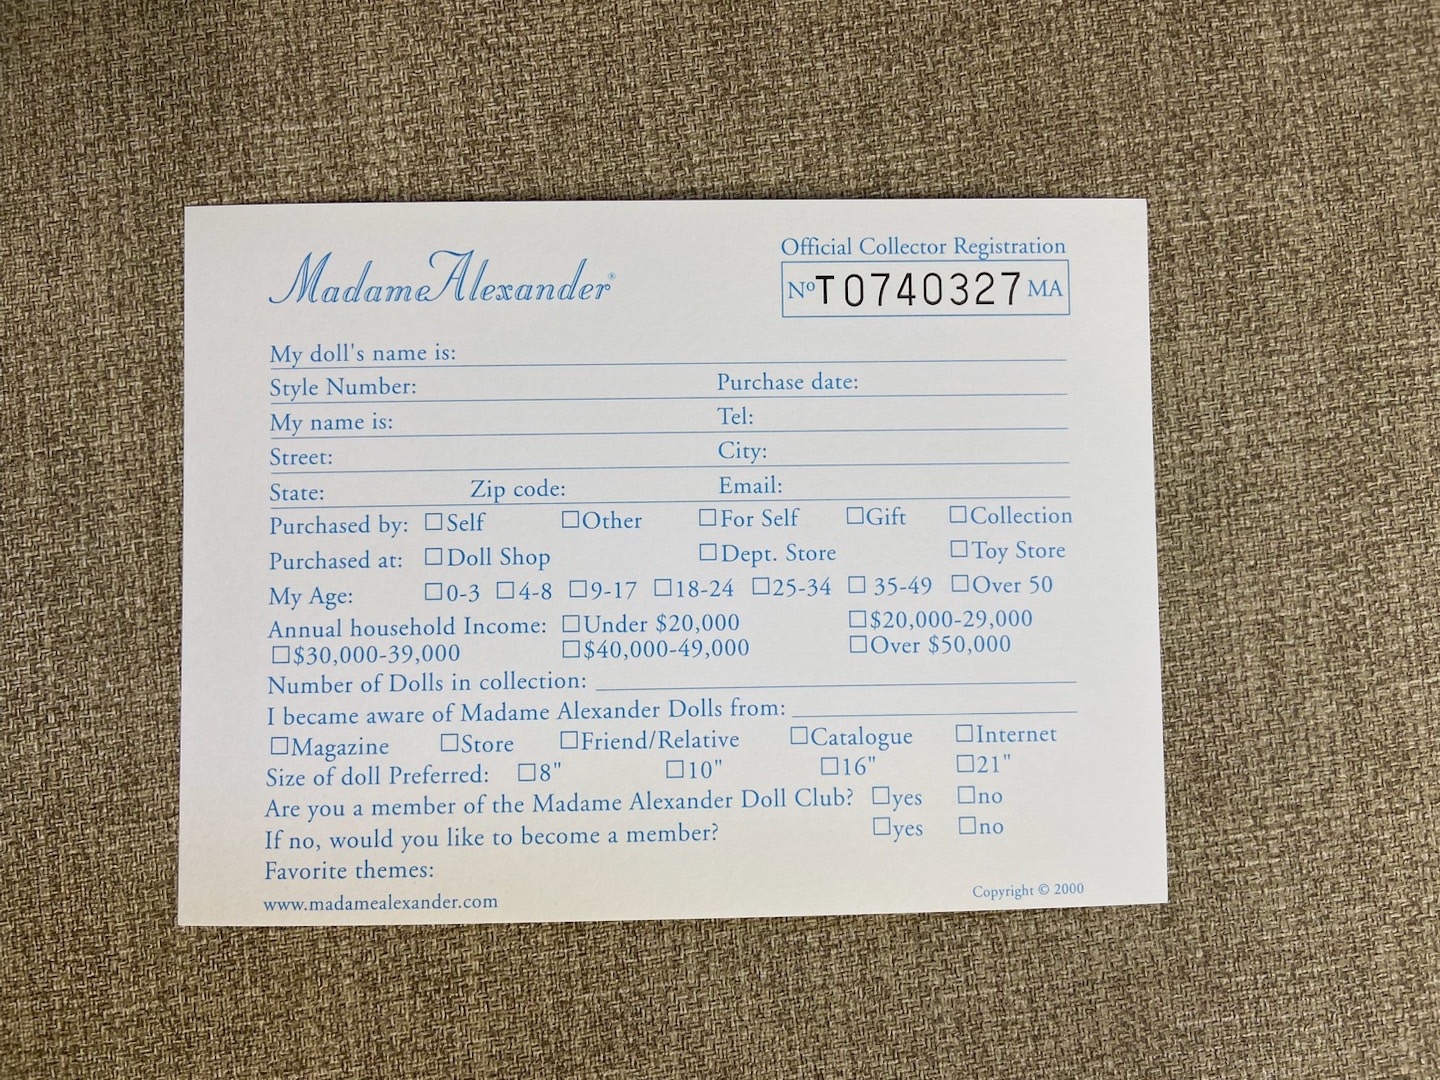 Madame Alexander®
Official Collector Registration
Nº T0740327 MA
My doll's name is:
Style Number: Purchase date:
My name is: Tel:
Street: City:
State: Zip code: Email:
Purchased by: ☐Self ☐Other ☐For Self ☐Gift ☐Collection
Purchased at: ☐Doll Shop ☐Dept. Store ☐Toy Store
My Age: ☐0-3 ☐4-8 ☐9-17 ☐18-24 ☐25-34 ☐ 35-49 ☐Over 50
Annual household Income: ☐Under $20,000 ☐$20,000-29,000
☐$30,000-39,000 ☐$40,000-49,000 ☐Over $50,000
Number of Dolls in collection:
I became aware of Madame Alexander Dolls from:
☐Magazine ☐Store ☐Friend/Relative ☐Catalogue ☐Internet
Size of doll Preferred: ☐8" ☐10" ☐16" ☐21"
Are you a member of the Madame Alexander Doll Club? ☐yes ☐no
If no, would you like to become a member? ☐yes ☐no
Favorite themes:
www.madamealexander.com
Copyright © 2000